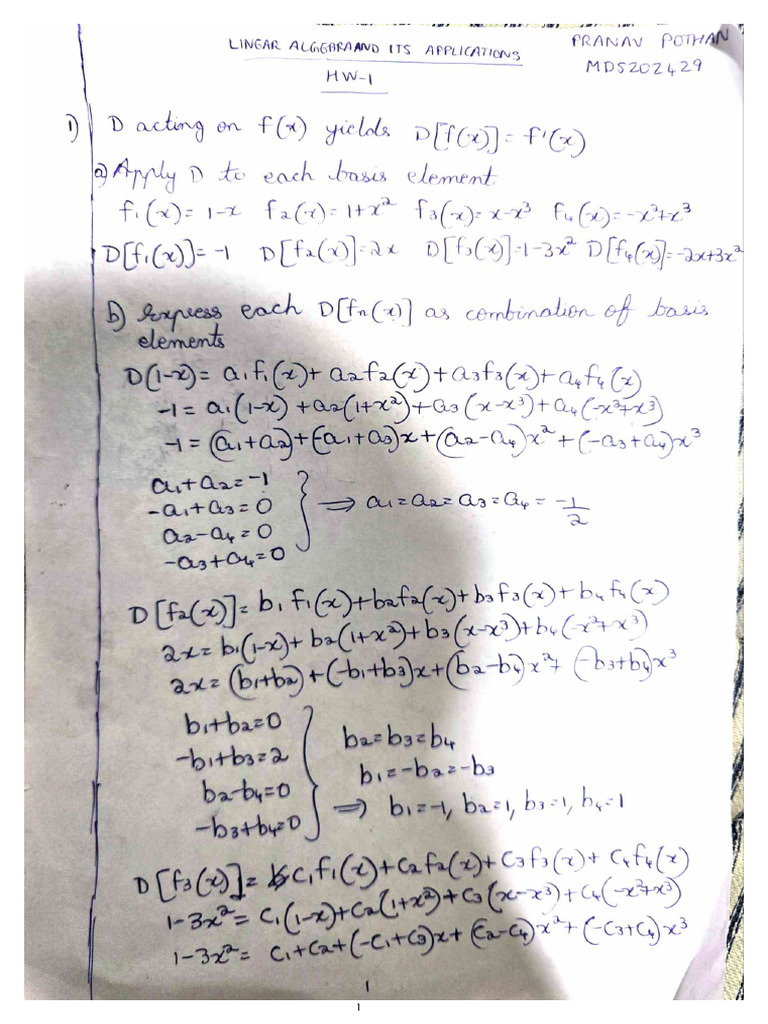 LINEAR ALGEBRA AND ITS APPLICATIONS
PRANAV POTHAN
HW-1
MDS202429
1) D acting on f(x) yields D[f(x)] = f'(x)
a) Apply D to each basis element
f1(x) = 1-x f2(x) = 1+x² f3(x) = x-x³ f4(x) = -x²+x³
D[f1(x)] = -1 D[f2(x)] = 2x D[f3(x)] = 1-3x² D[f4(x)] = -2x+3x²
b) Express each D[fn(x)] as combination of basis
elements
D(1-x) = a1f1(x) + a2f2(x) + a3f3(x) + a4f4(x)
-1 = a1(1-x) + a2(1+x²) + a3(x-x³) + a4(-x²+x³)
-1 = (a1+a2) + (-a1+a3)x + (a2-a4)x² + (-a3+a4)x³
a1+a2 = -1
-a1+a3 = 0
a2-a4 = 0
-a3+a4 = 0
⟹ a1 = a2 = a3 = a4 = -1/2
D[f2(x)] = b1f1(x) + b2f2(x) + b3f3(x) + b4f4(x)
2x = b1(1-x) + b2(1+x²) + b3(x-x³) + b4(-x²+x³)
2x = (b1+b2) + (-b1+b3)x + (b2-b4)x² + (-b3+b4)x³
b1+b2 = 0
-b1+b3 = 2
b2-b4 = 0
-b3+b4 = 0
b2 = b3 = b4
b1 = -b2 = -b3
⟹ b1 = -1, b2 = 1, b3 = 1, b4 = 1
D[f3(x)] = c1f1(x) + c2f2(x) + c3f3(x) + c4f4(x)
1-3x² = c1(1-x) + c2(1+x²) + c3(x-x³) + c4(-x²+x³)
1-3x² = c1+c2+(-c1+c3)x + (c2-c4)x² + (-c3+c4)x³
1
1